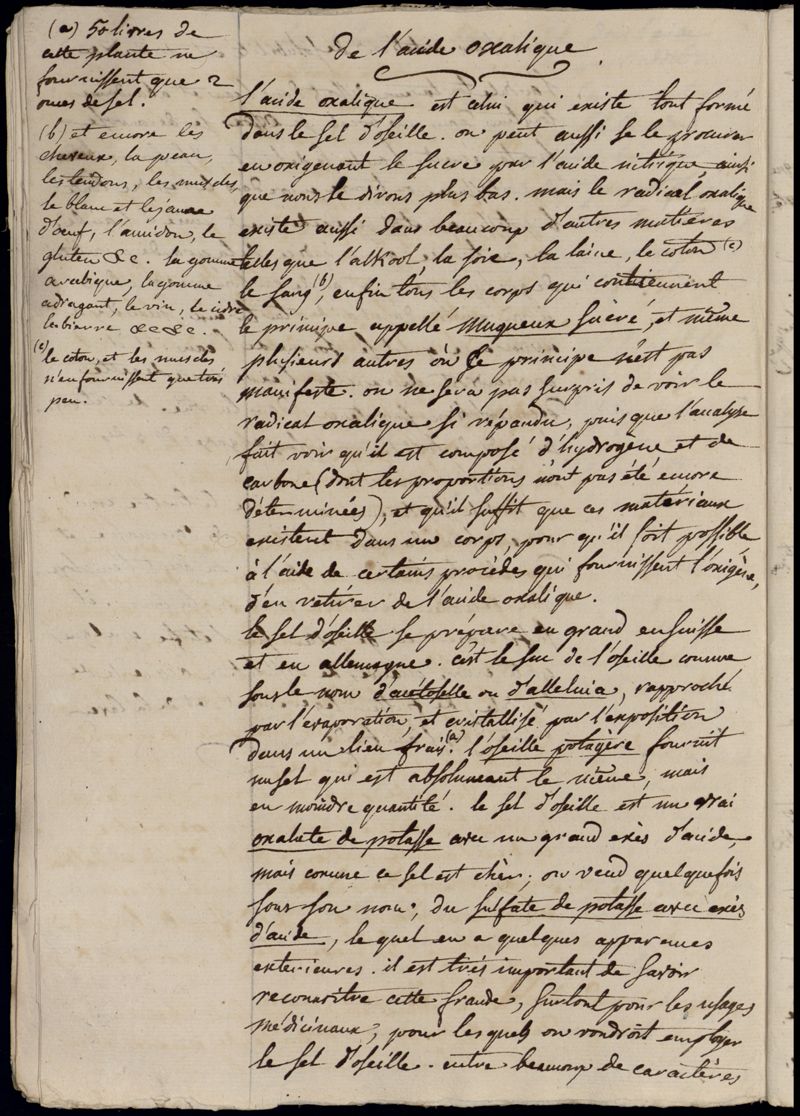 (a) 50 livres de
cette plante ne
fournissent que 2
onces de sel.
(b) et encore les
cheveux, la peau,
les tendons, les muscles,
le blanc et le jaune
d'oeuf, l'amidon, le
gluten &c. la gomme
arabique, la gomme
adragant, le vin, le cidre
les bierre &c &c.
(c) le coton, et les muscles
n'en fournissent que très
peu.
de l'acide oxalique
l'acide oxalique est celui qui existe tout formé
dans le sel d'oseille. on peut aussi se le procurer
en oxigenant le sucre par l'acide nitrique, ainsi
que nous le dirons plus bas. mais le radical oxalique
existe aussi dans beaucoup d'autres matières
telles que l'alkool, la soie, la laine, le coton (c)
le sang (b), enfin tous les corps qui contiennent
le principe appellé muqueux sucré, et même
plusieurs autres où ce principe n'est pas
manifeste. on ne sera pas surpris de voir le
radical oxalique si répandu, puis que l'analyse
fait voir qu'il est composé d'hydrogène et de
carbone (dont les proportions n'ont pas été encore
déterminées), et qu'il suffit que ces matériaux
existent dans un corps, pour qu'il soit possible,
à l'aide de certains procédés qui fournissent l'oxigène,
d'en retirer de l'acide oxalique.
le sel d'oseille se prépare en grand en suisse
et en allemagne. c'est le suc de l'oseille connue
sous le nom d'acétoselle ou d'alleluia, rapproché
par l'évaporation, et cristallisé par l'exposition
dans un lieu frais (a). l'oseille potagère fournit
un sel qui est absolument le même, mais
en moindre quantité. le sel d'oseille est un vrai
oxalate de potasse avec un grand excès d'acide,
mais comme ce sel est chèr, on vend quelquefois
sous son nom, du sulfate de potasse avec excès
d'acide, le quel en a quelques apparences
exterieures. il est très important de savoir
reconnoître cette fraude, surtout pour les usages
médicinaux, pour lesquels on voudroit employer
le sel d'oseille. entre beaucoup de caractères